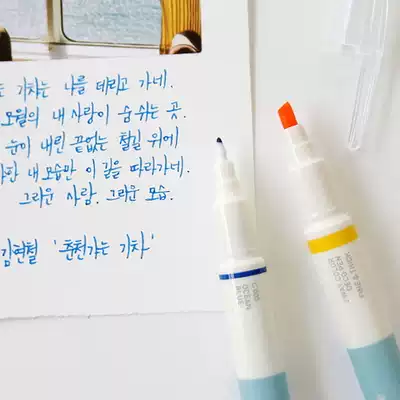 기차는 나를 데리고 가네.
오월의 내 사랑이 숨 쉬는 곳.
눈이 내린 끝없는 철길 위에
내 모습만 이 길을 따라가네.
그리운 사람. 그리운 모습.
김현철 '춘천가는 기차'